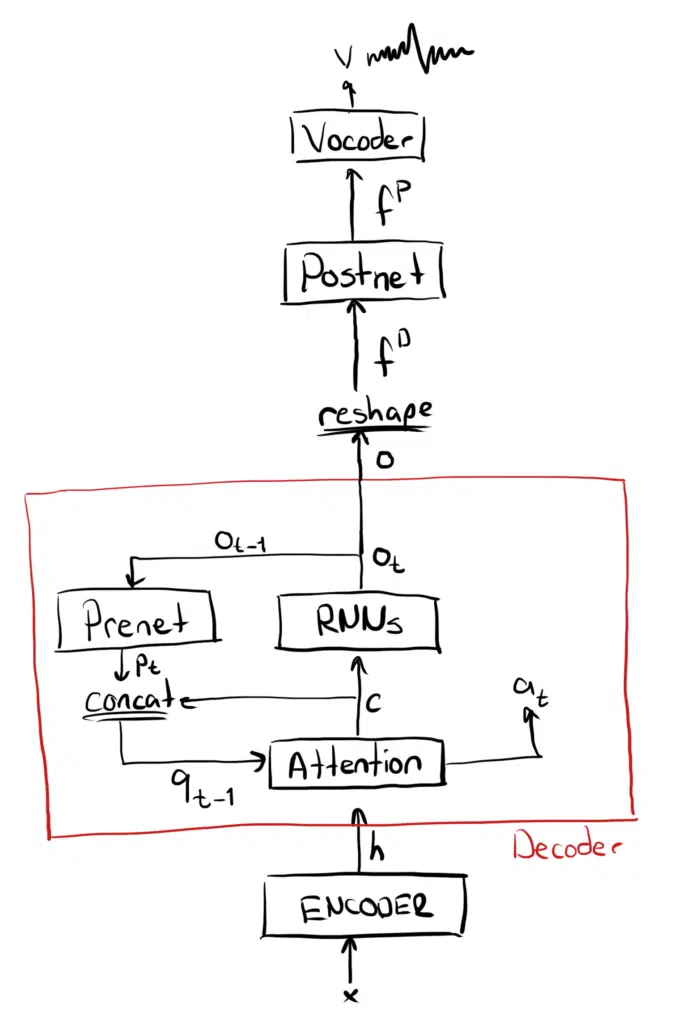 v
Vocoder
f^P
Postnet
f^D
reshape
o
o_{t-1}
o_t
Prenet
RNNs
p_t
concate
c
a_t
Attention
q_{t-1}
Decoder
h
ENCODER
x